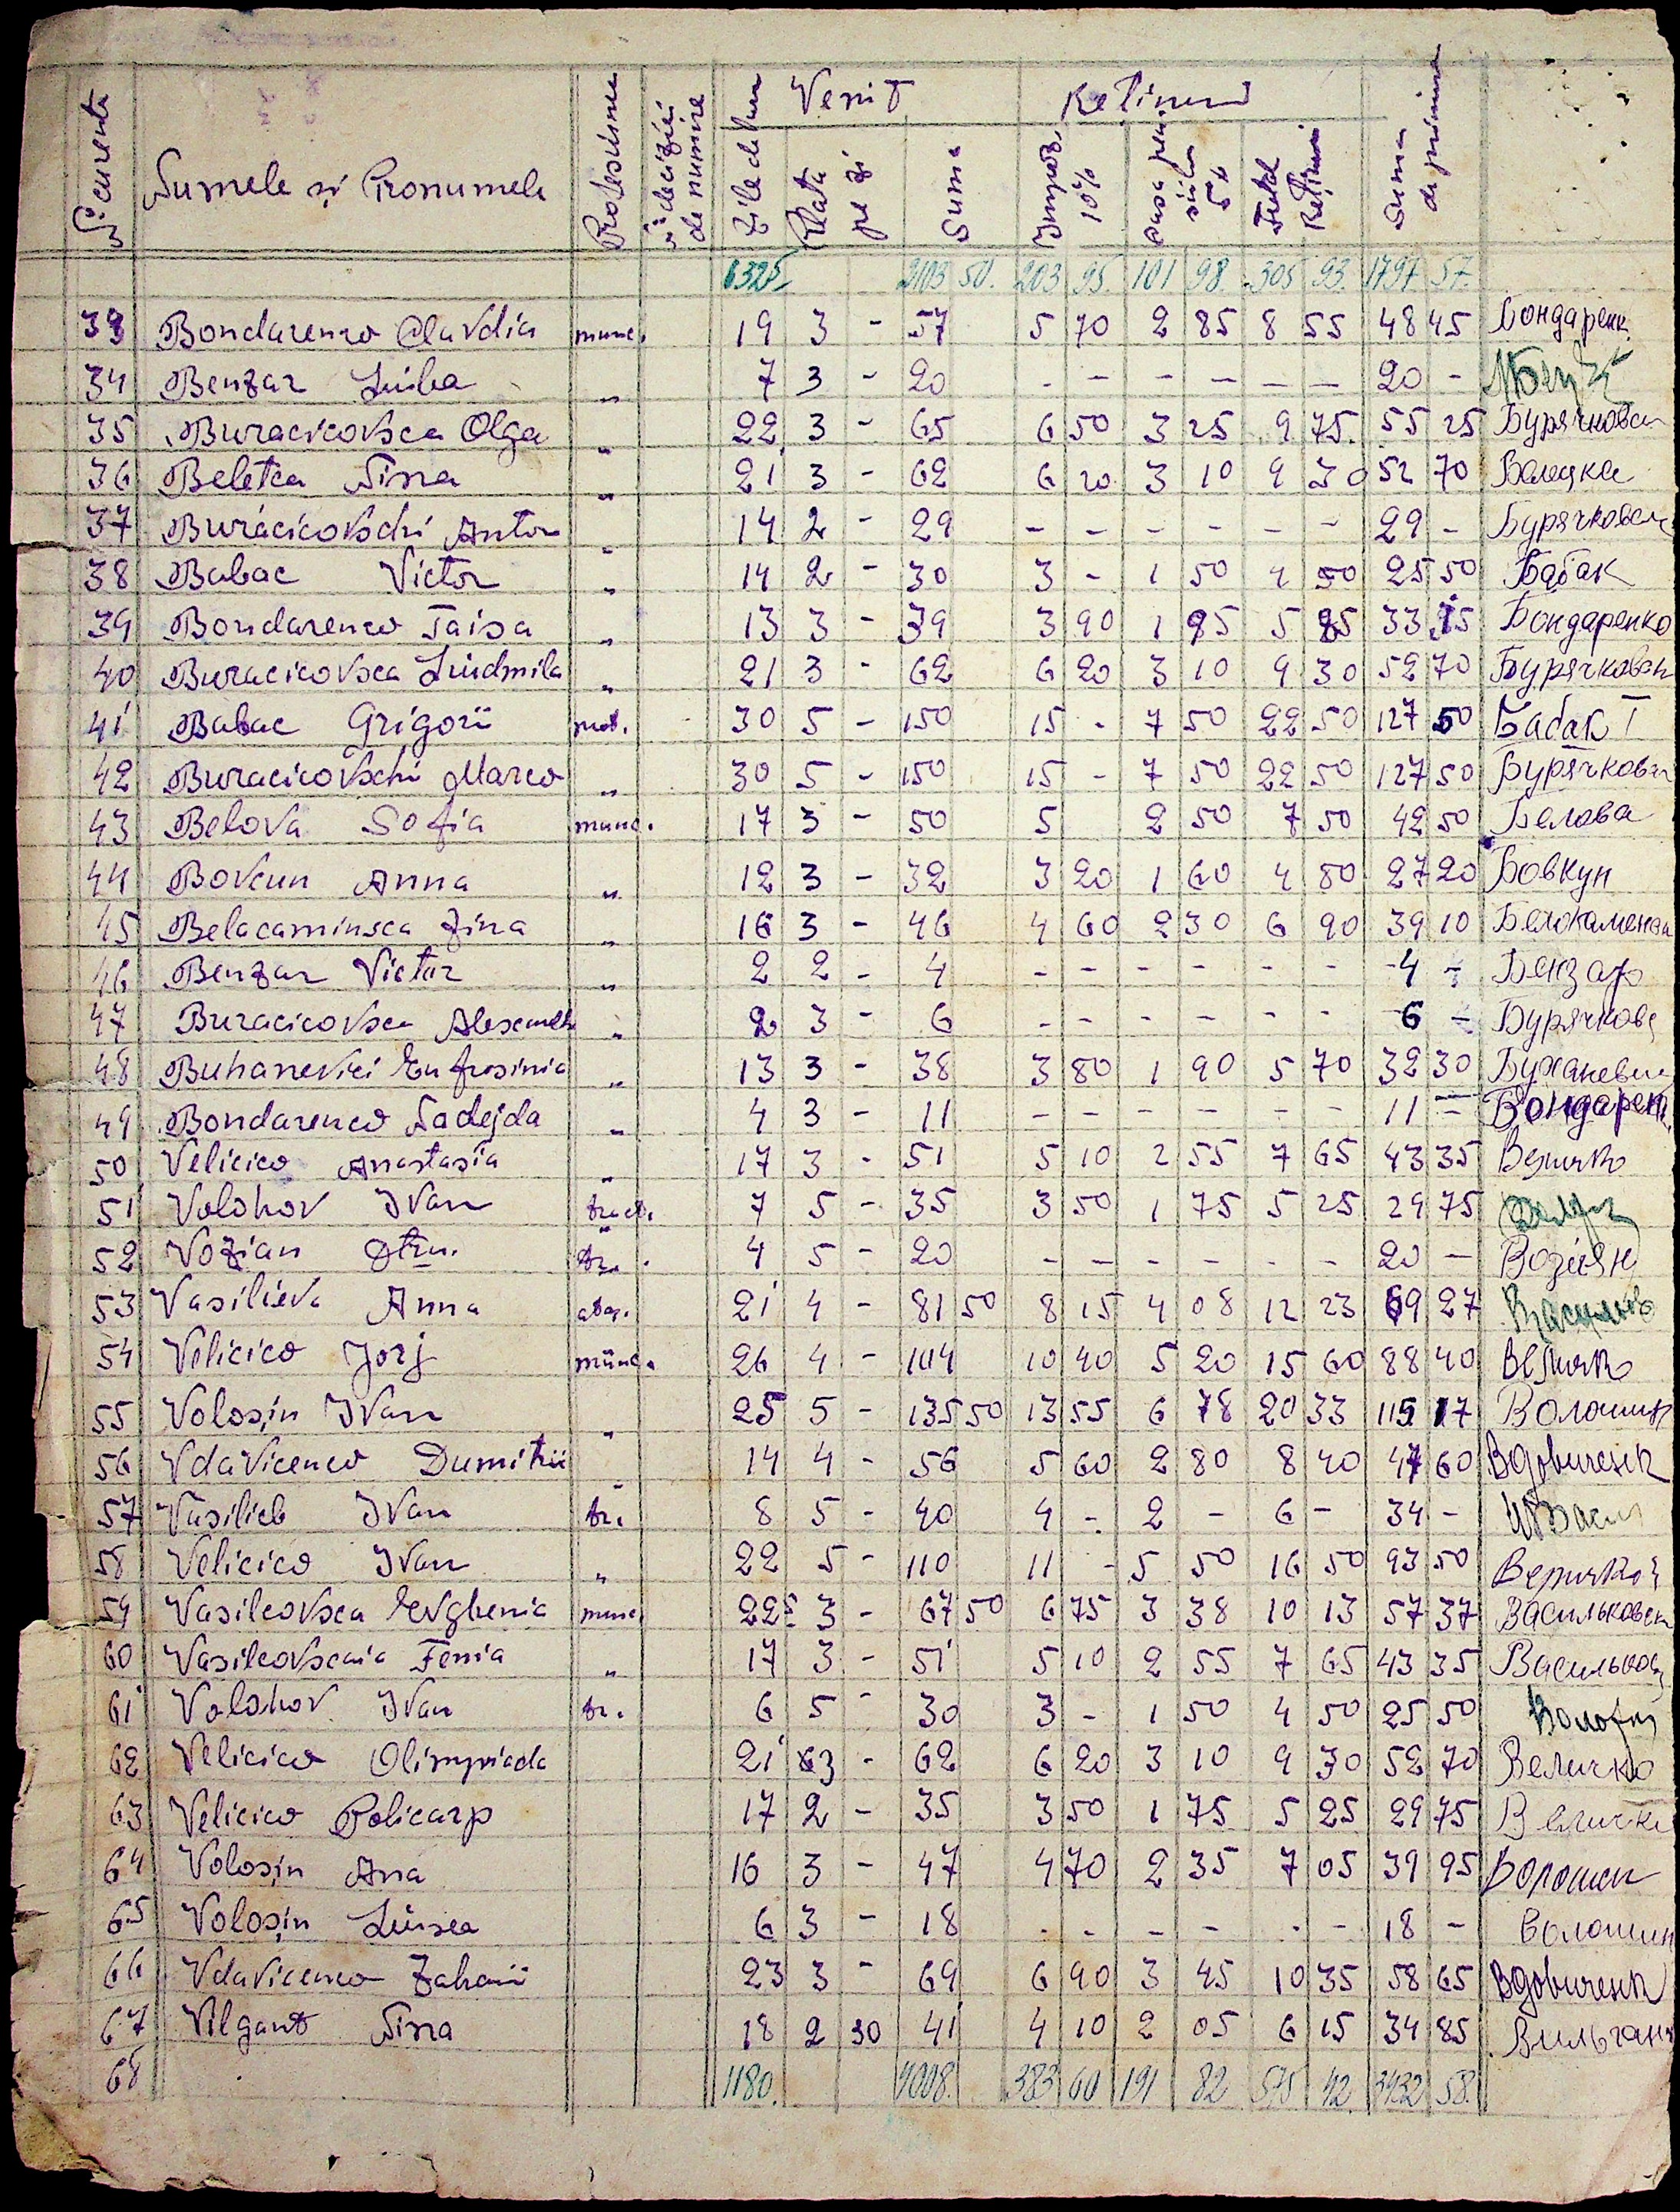 Venit Rețineri
curente Numele și Pronumele Profesiunea deciziei de numire Zile de lucru Plata pe zi Suma Impoz. 10% Casa 5% Total Rețineri Suma de primire
632 2103 50. 203 95. 101 98. 305 93. 1797 57.
33 Bondarenco Clavdia munc. 19 3 - 57 5 70 2 85 8 55 48 45 Бондаренк
34 Benzar Liuba " 7 3 - 20 - - - - - - 20 -
35 Buracicovsca Olga " 22 3 - 65 6 50 3 25 9 75 55 25 Бурячковск
36 Belețca Nina " 21 3 - 62 6 20 3 10 9 30 52 70 Белецка
37 Buracicovschi Anton " 14 2 - 29 - - - - - - 29 - Бурячковск
38 Babac Victor " 14 2 - 30 3 - 1 50 4 50 25 50 Бабак
39 Bondarenco Taisa " 13 3 - 39 3 90 1 95 5 85 33 15 Бондаренко
40 Buracicovsca Liudmila " 21 3 - 62 6 20 3 10 9 30 52 70 Бурячковск
41 Babac Grigorii 30 5 - 150 15 - 7 50 22 50 127 50 Бабак Г
42 Buracicovschi Marco " 30 5 - 150 15 - 7 50 22 50 127 50 Бурячковск
43 Belova Sofia munc. 17 3 - 50 5 2 50 7 50 42 50 Белова
44 Bovcun Anna " 12 3 - 32 3 20 1 60 4 80 27 20 Бовкун
45 Belacaminsca Zina " 16 3 - 46 4 60 2 30 6 90 39 10 Белокаменска
46 Benzar Victor " 2 2 - 4 - - - - - - 4 - Бензар
47 Buracicovsca " 2 3 - 6 - - - - - - 6 - Бурячковс
48 Buhanevici Eufrosinia " 13 3 - 38 3 80 1 90 5 70 32 30 Буханевич
49 Bondarenco Nadejda " 4 3 - 11 - - - - - - 11 - Бондарен
50 Velicico Anastasia " 17 3 - 51 5 10 2 55 7 65 43 35 Величко
51 Volohov Ivan tract. 7 5 - 35 3 50 1 75 5 25 29 75
52 Vozian Dtru. tr. 4 5 - 20 - - - - - - 20 - Возиян
53 Vasilieva Anna 21 4 - 81 50 8 15 4 08 12 23 69 27
54 Velicico Jorj munc. 26 4 - 104 10 40 5 20 15 60 88 40 Величко
55 Voloșin Ivan " 25 5 - 135 50 13 55 6 78 20 33 115 17 Волошин
56 Vdavicenco Dumitrii " 14 4 - 56 5 60 2 80 8 40 47 60 Вдовиченк
57 Vasilieb Ivan tr. 8 5 - 40 4 - 2 - 6 - 34 -
58 Velicico Ivan " 22 5 - 110 11 - 5 50 16 50 93 50
59 Vasilcovsca Evghenia munc. 22 5 3 - 67 50 6 75 3 38 10 13 57 37 Васильковск
60 Vasilcovscaia Fenia " 17 3 - 51 5 10 2 55 7 65 43 35 Васильков
61 Volohov Ivan tr. 6 5 - 30 3 - 1 50 4 50 25 50
62 Velicico Olimpiada 21 3 - 62 6 20 3 10 9 30 52 70 Величко
63 Velicico Policarp 17 2 - 35 3 50 1 75 5 25 29 75 Величк
64 Voloșin Ana 16 3 - 47 4 70 2 35 7 05 39 95 Волошин
65 Voloșin Liusea 6 3 - 18 - - - - - - 18 - Волошин
66 Vdavicenco Zaharii 23 3 - 69 6 90 3 45 10 35 58 65 Вдовиченк
67 Vilgant Nina 18 2 30 41 4 10 2 05 6 15 34 85 Вильгант
68 1180. 4008. 383 60 191 82 575 42 3432 58.